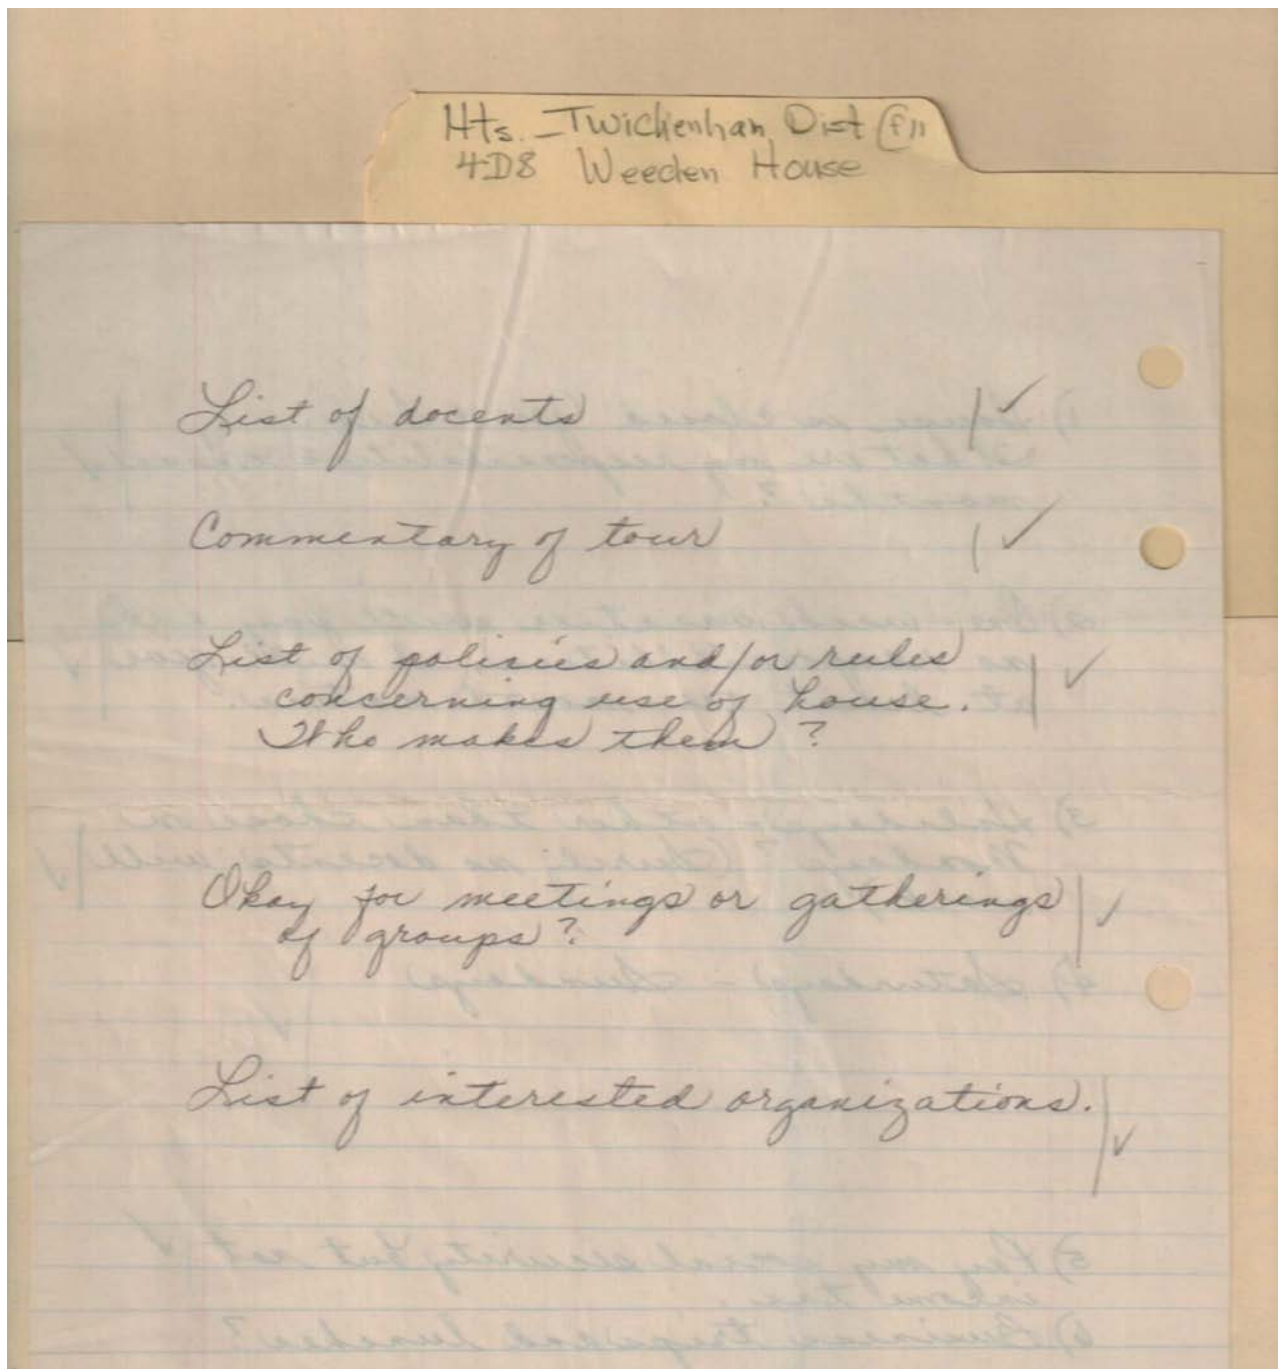 Hts. - Twichenham Dist (f)11
4D8 Weeden House
List of docents
Commentary of tour
List of policies and/or rules
concerning use of house.
Who makes them?
Okay for meetings or gatherings
of groups?
List of interested organizations.